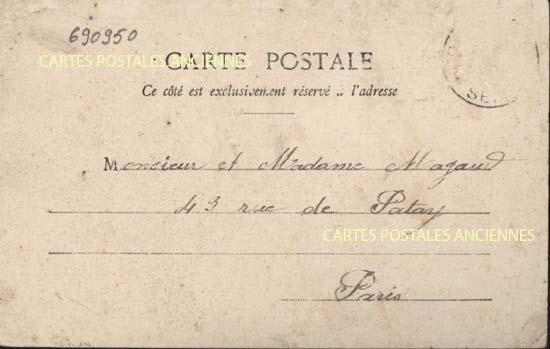 690950
CARTES POSTALES ANCIENNES
CARTE POSTALE
Ce côté est exclusivement réservé à l'adresse
Monsieur et Madame Magaud
43 rue de Patay
CARTES POSTALES ANCIENNES
Paris